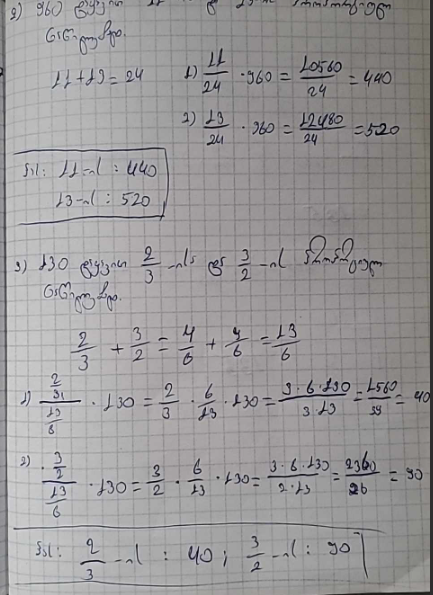 2) 960 დყავი 11 - ს და 13-ის პროპორციულ
ნაწილებად.
11+13=24 1) 11/24 · 960 = 10560/24 = 440
2) 13/24 · 960 = 12480/24 = 520
პას: 11-ი : 440
13-ი : 520
3) 130 დყავი 2/3 -ის და 3/2 -ი პროპორციულ
ნაწილებად.
2/3 + 3/2 = 4/6 + 9/6 = 13/6
1) 2/3 / 13/6 · 130 = 2/3 · 6/13 · 130 = 2·6·130/3·13 = 1560/39 = 40
2) 3/2 / 13/6 · 130 = 3/2 · 6/13 · 130 = 3·6·130/2·13 = 2340/26 = 90
პას: 2/3 -ი : 40 ; 3/2 -ი : 90